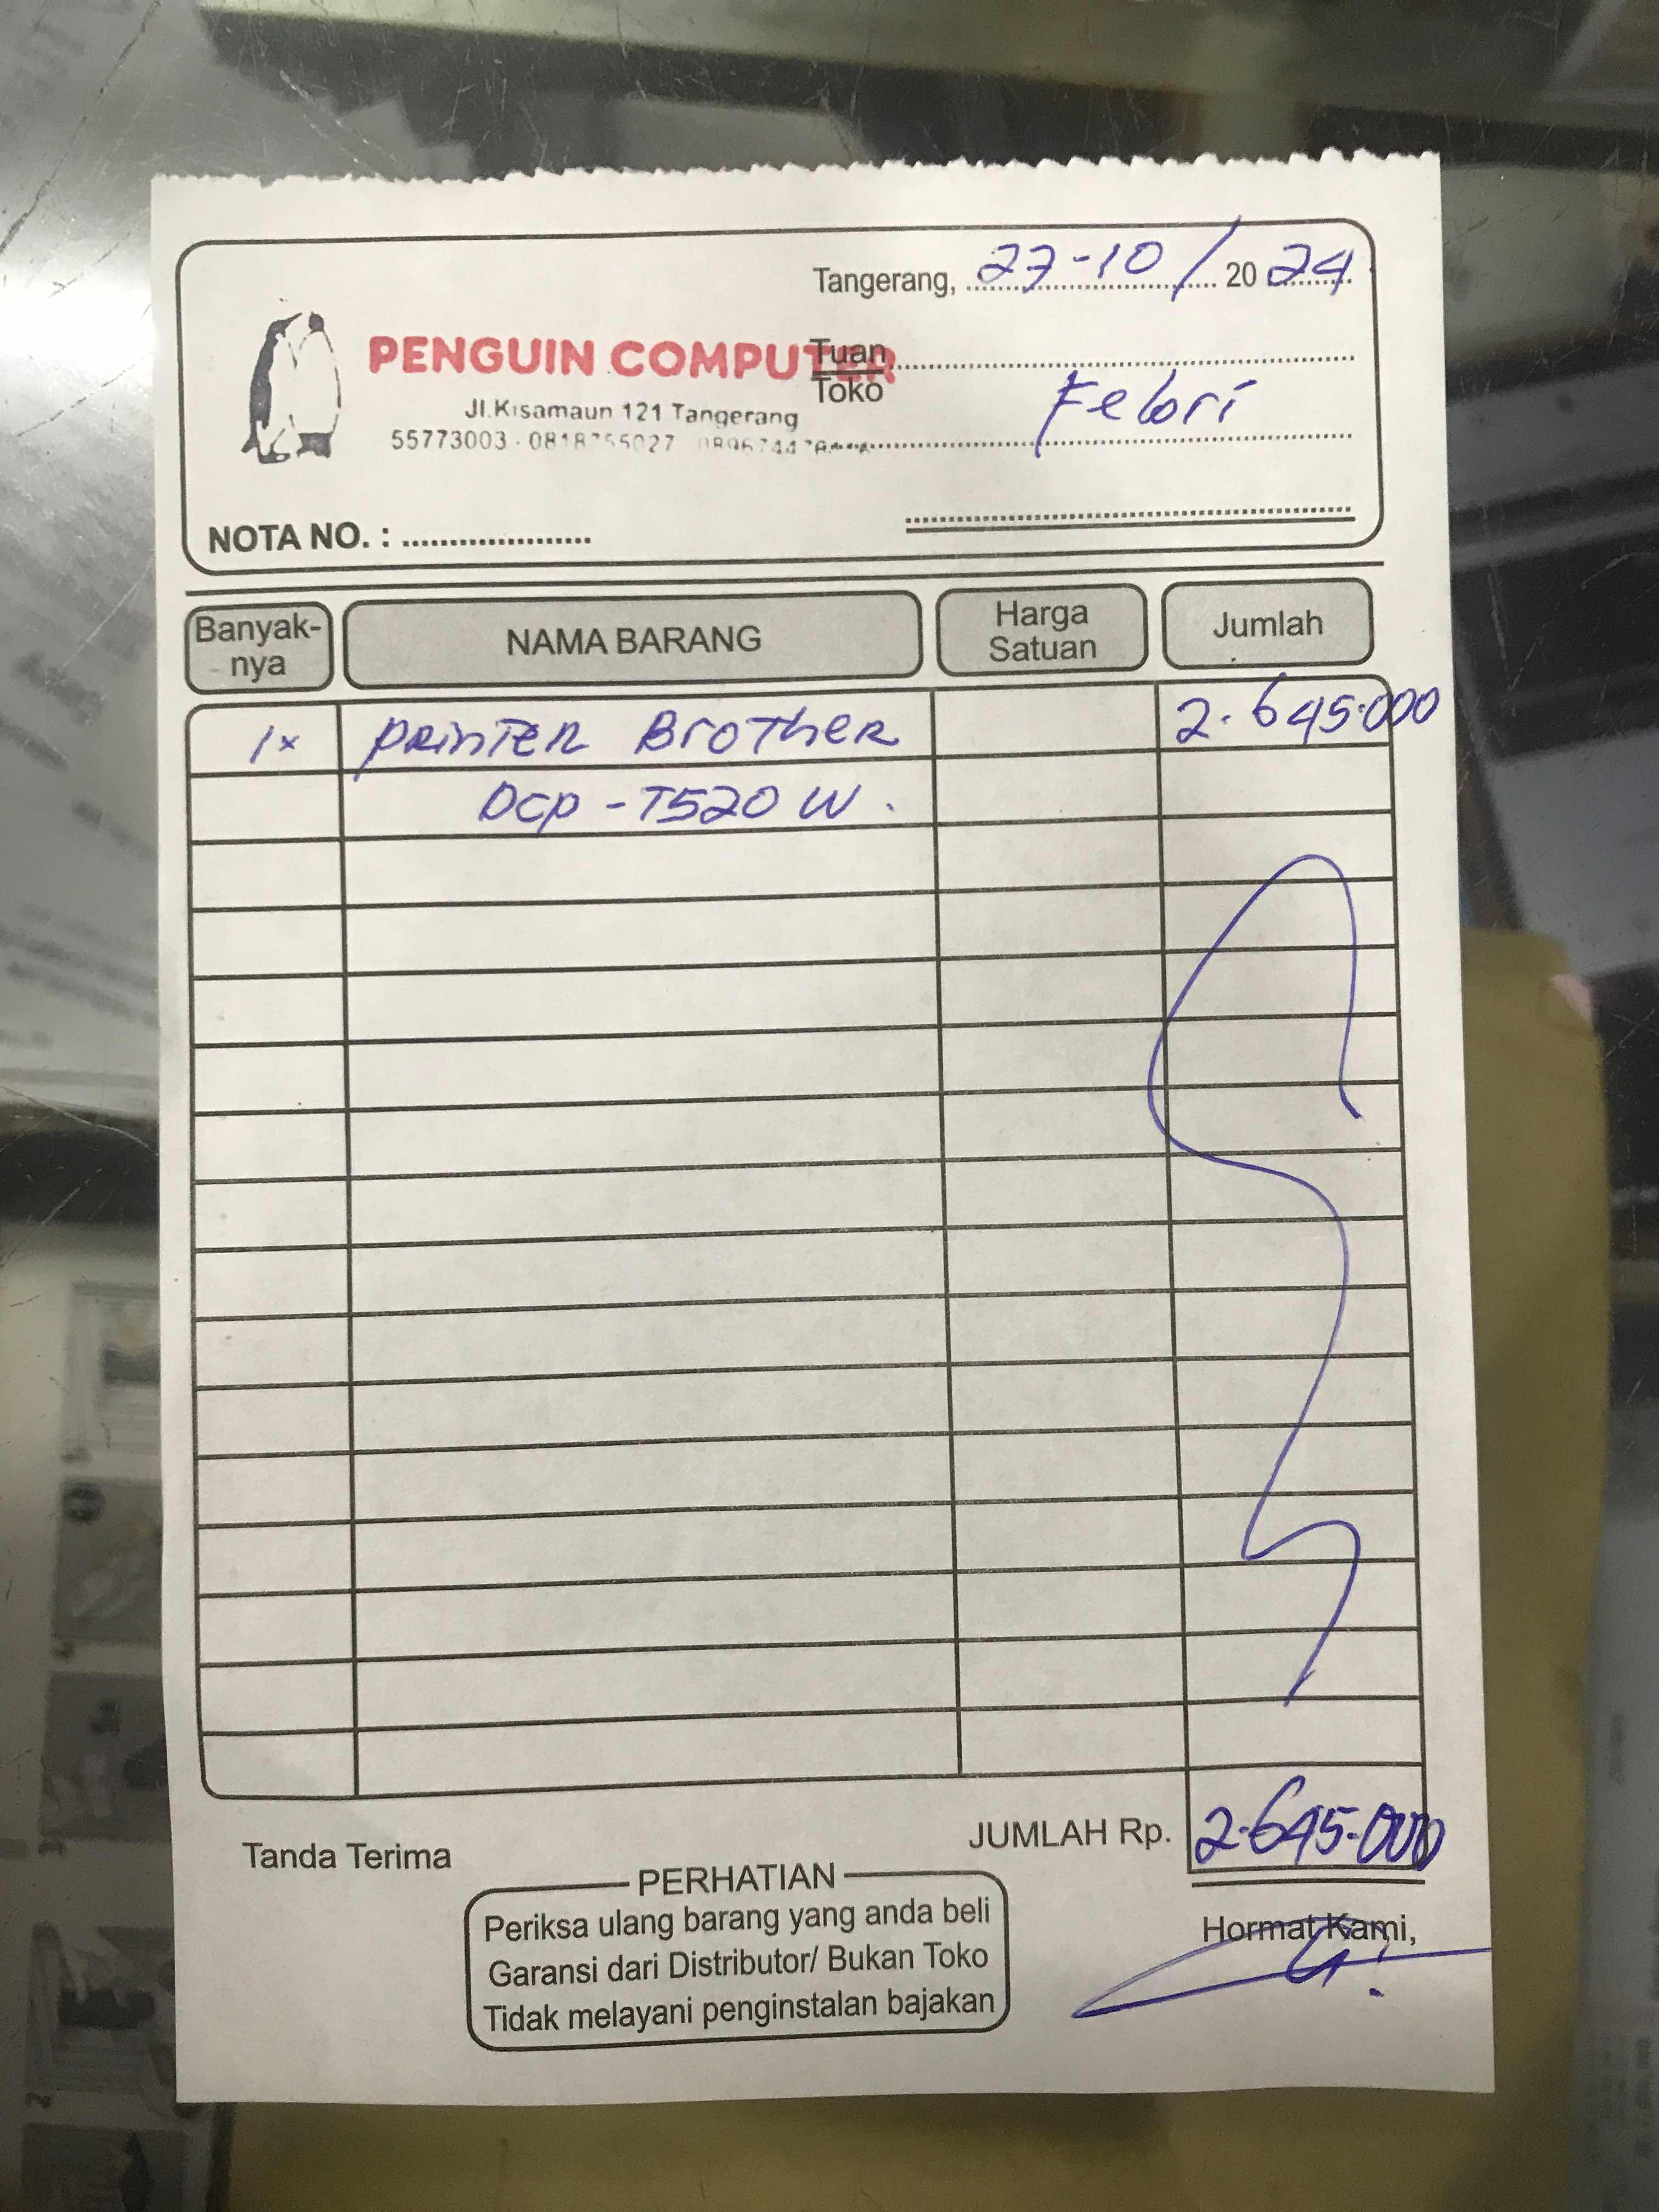 Tangerang, 27-10 / 2024
PENGUIN COMPUTER
Tuan
Toko
Jl.Kisamaun 121 Tangerang
Febri
55773003 - 0818755027
NOTA NO. :
Banyak-
nya
NAMA BARANG
Harga
Satuan
Jumlah
1x Printer Brother 2.645.000
DCP-T520 W.
JUMLAH Rp. 2.645.000
Tanda Terima
PERHATIAN
Periksa ulang barang yang anda beli
Garansi dari Distributor/ Bukan Toko
Tidak melayani penginstalan bajakan
Hormat Kami,